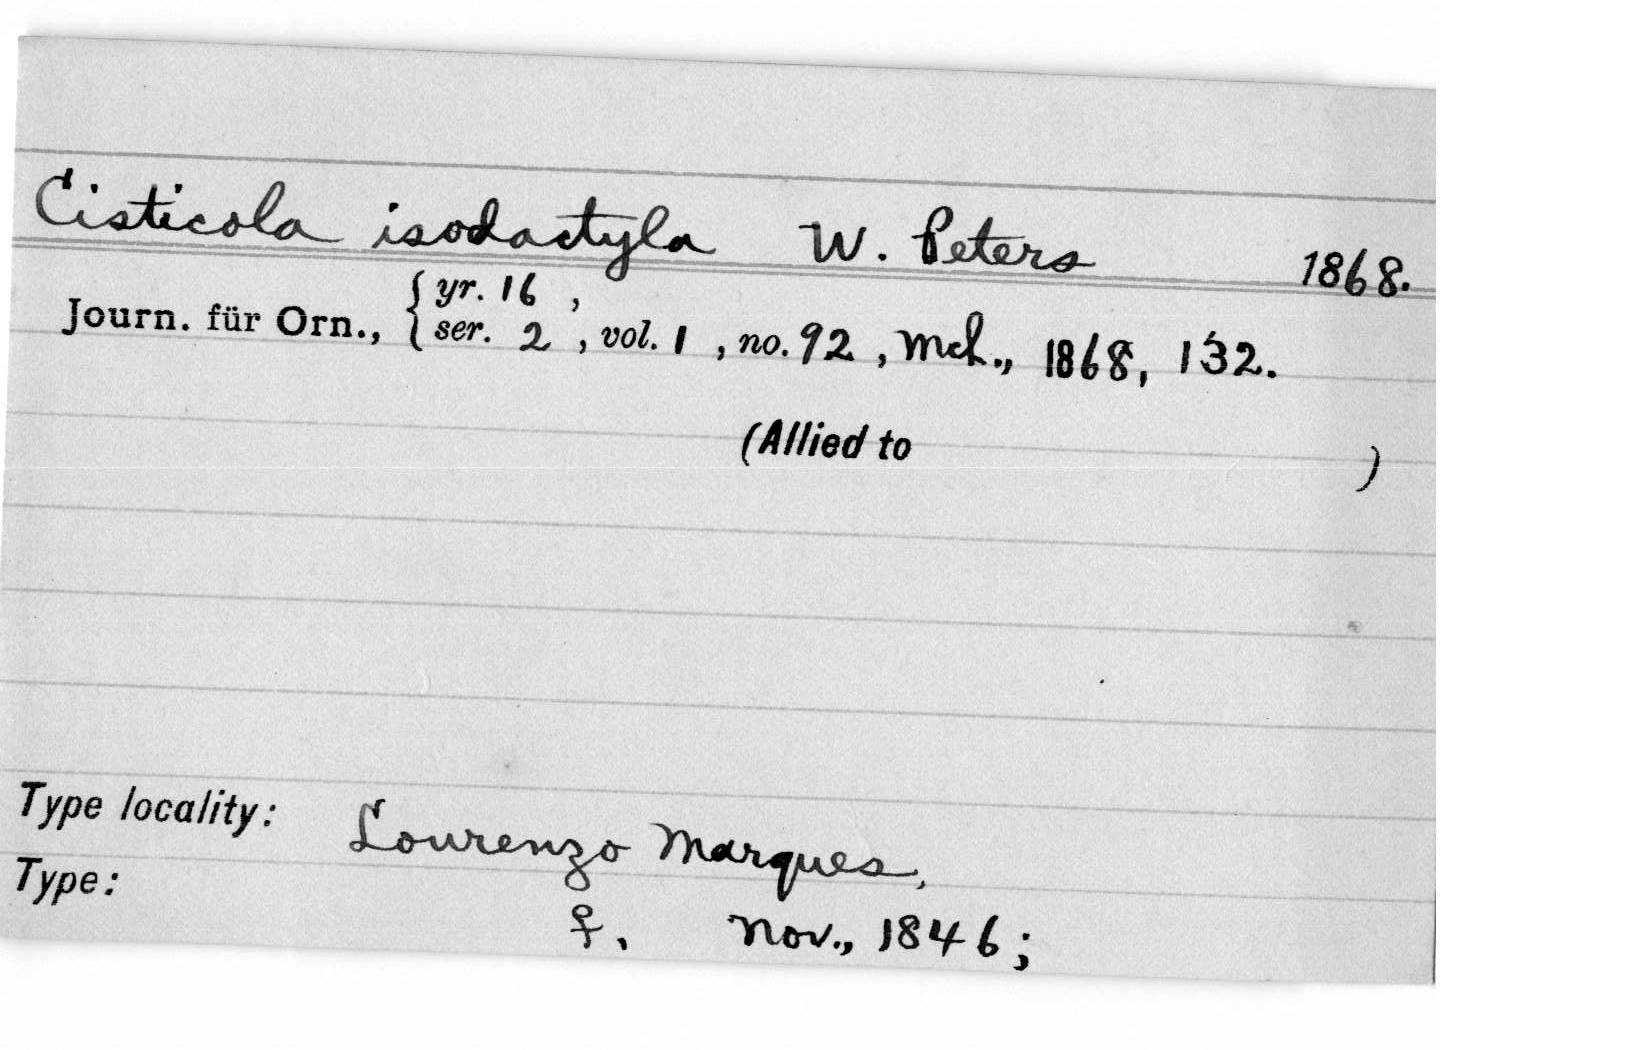 Cisticola isodactyla W. Peters 1868.
Journ. für Orn., { yr. 16 ,
ser. 2 , vol. 1 , no. 92 , Mch., 1868, 132.
(Allied to )
Type locality: Lourenzo Marques,
Type: ♀. Nov., 1846;